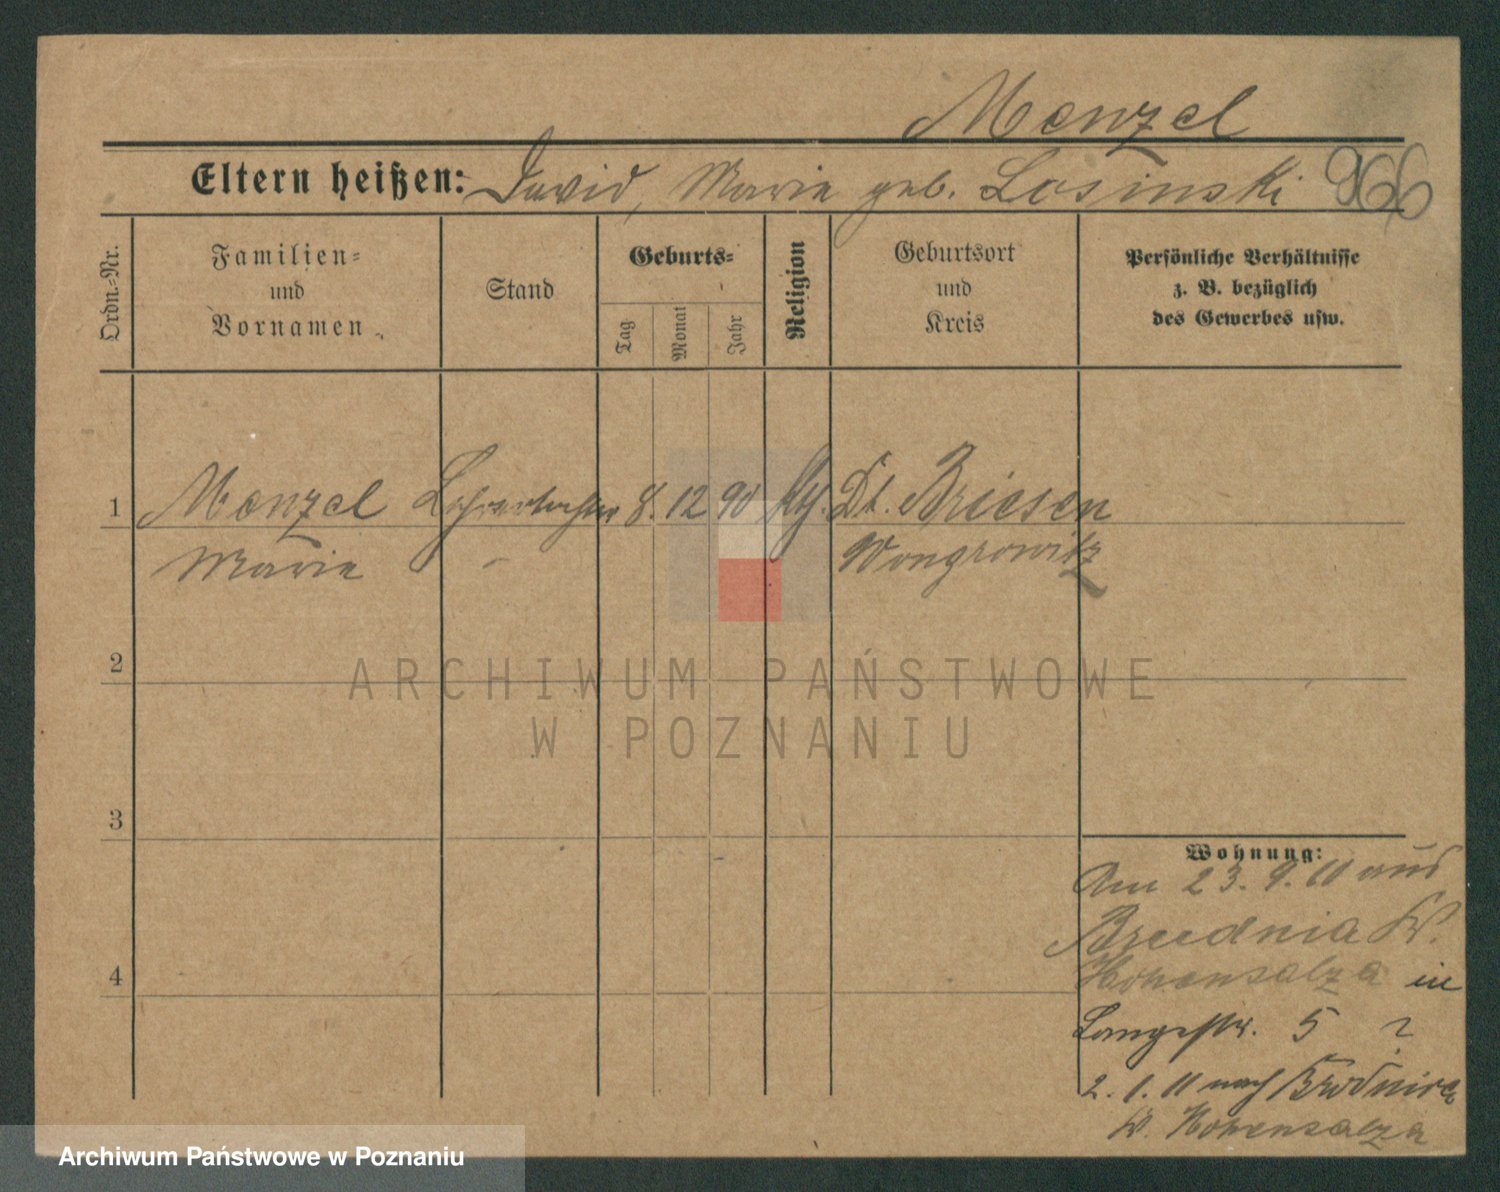 Menzel
Eltern heißen: David, Marie geb. Losinski 966
Ordn.-Nr.
Familien-
und
Vornamen
Stand
Geburts-
Tag
Monat
Jahr
Religion
Geburtsort
und
Kreis
Persönliche Verhältnisse
z. B. bezüglich
des Gewerbes usw.
1 Menzel Lehrertochter 8. 12 90 Dt. Briesen
Marie Wongrowitz
2
ARCHIWUM PAŃSTWOWE
W POZNANIU
3
Wohnung:
Am 23. 9. 10 aus
Hohensalza in
Langestr. 5
2. 1. 11 nach
Hohensalza
4
Archiwum Państwowe w Poznaniu